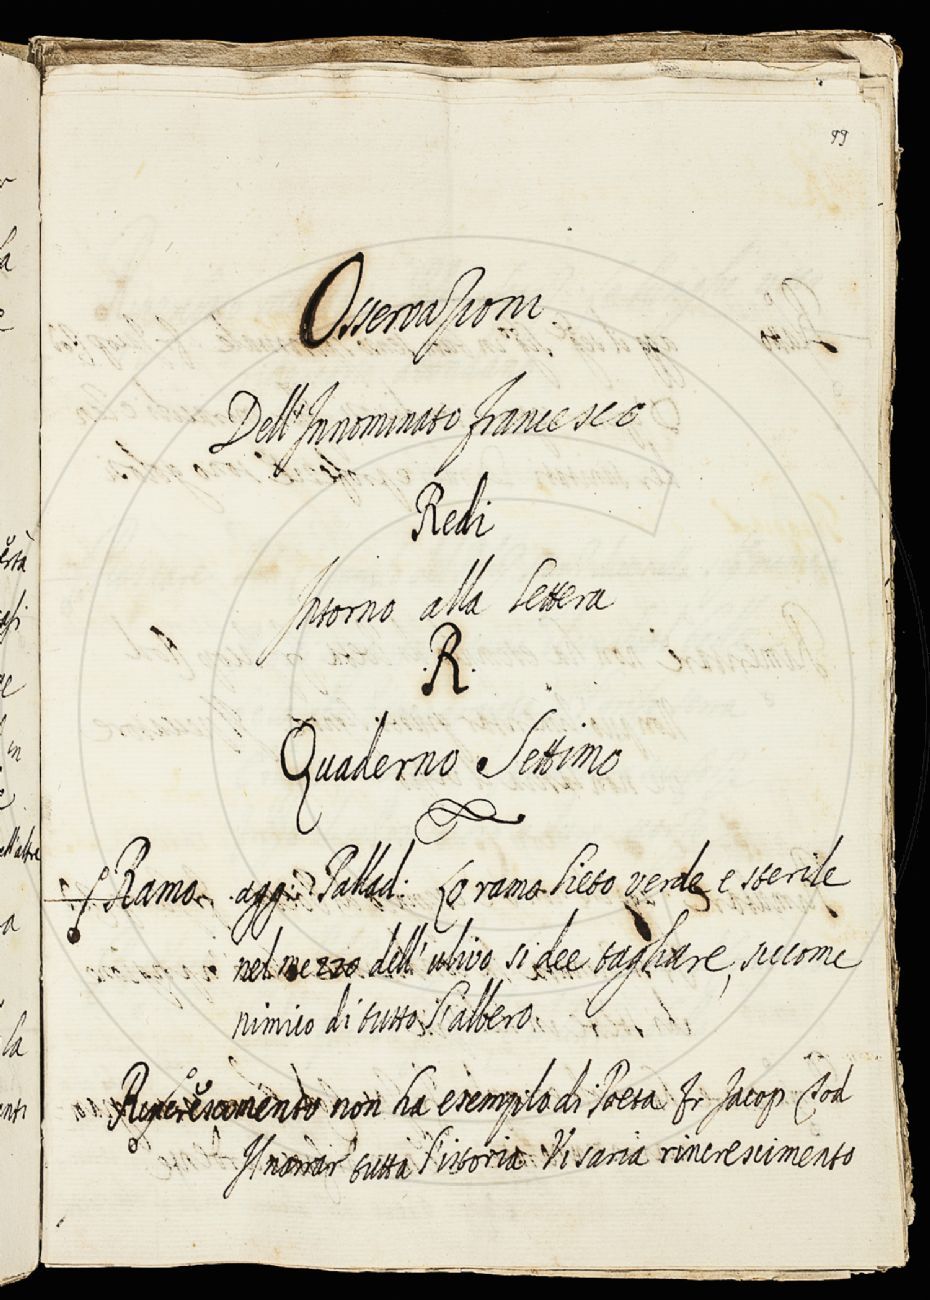 99
Osservazioni
Dell'Innominato Francesco
Redi
Intorno alla Lettera
.R.
Quaderno Settimo
Ramo. agg: Pallad: Lo ramo lieto verde e sterile
nel mezzo dell'ulivo si dee tagliare, siccome
nimico di tutto l'albero.
Rincrescimento non ha esempio di Poeta Fr Jacop Tod
Il narrar tutta l'istoria Vi saria rincrescimento